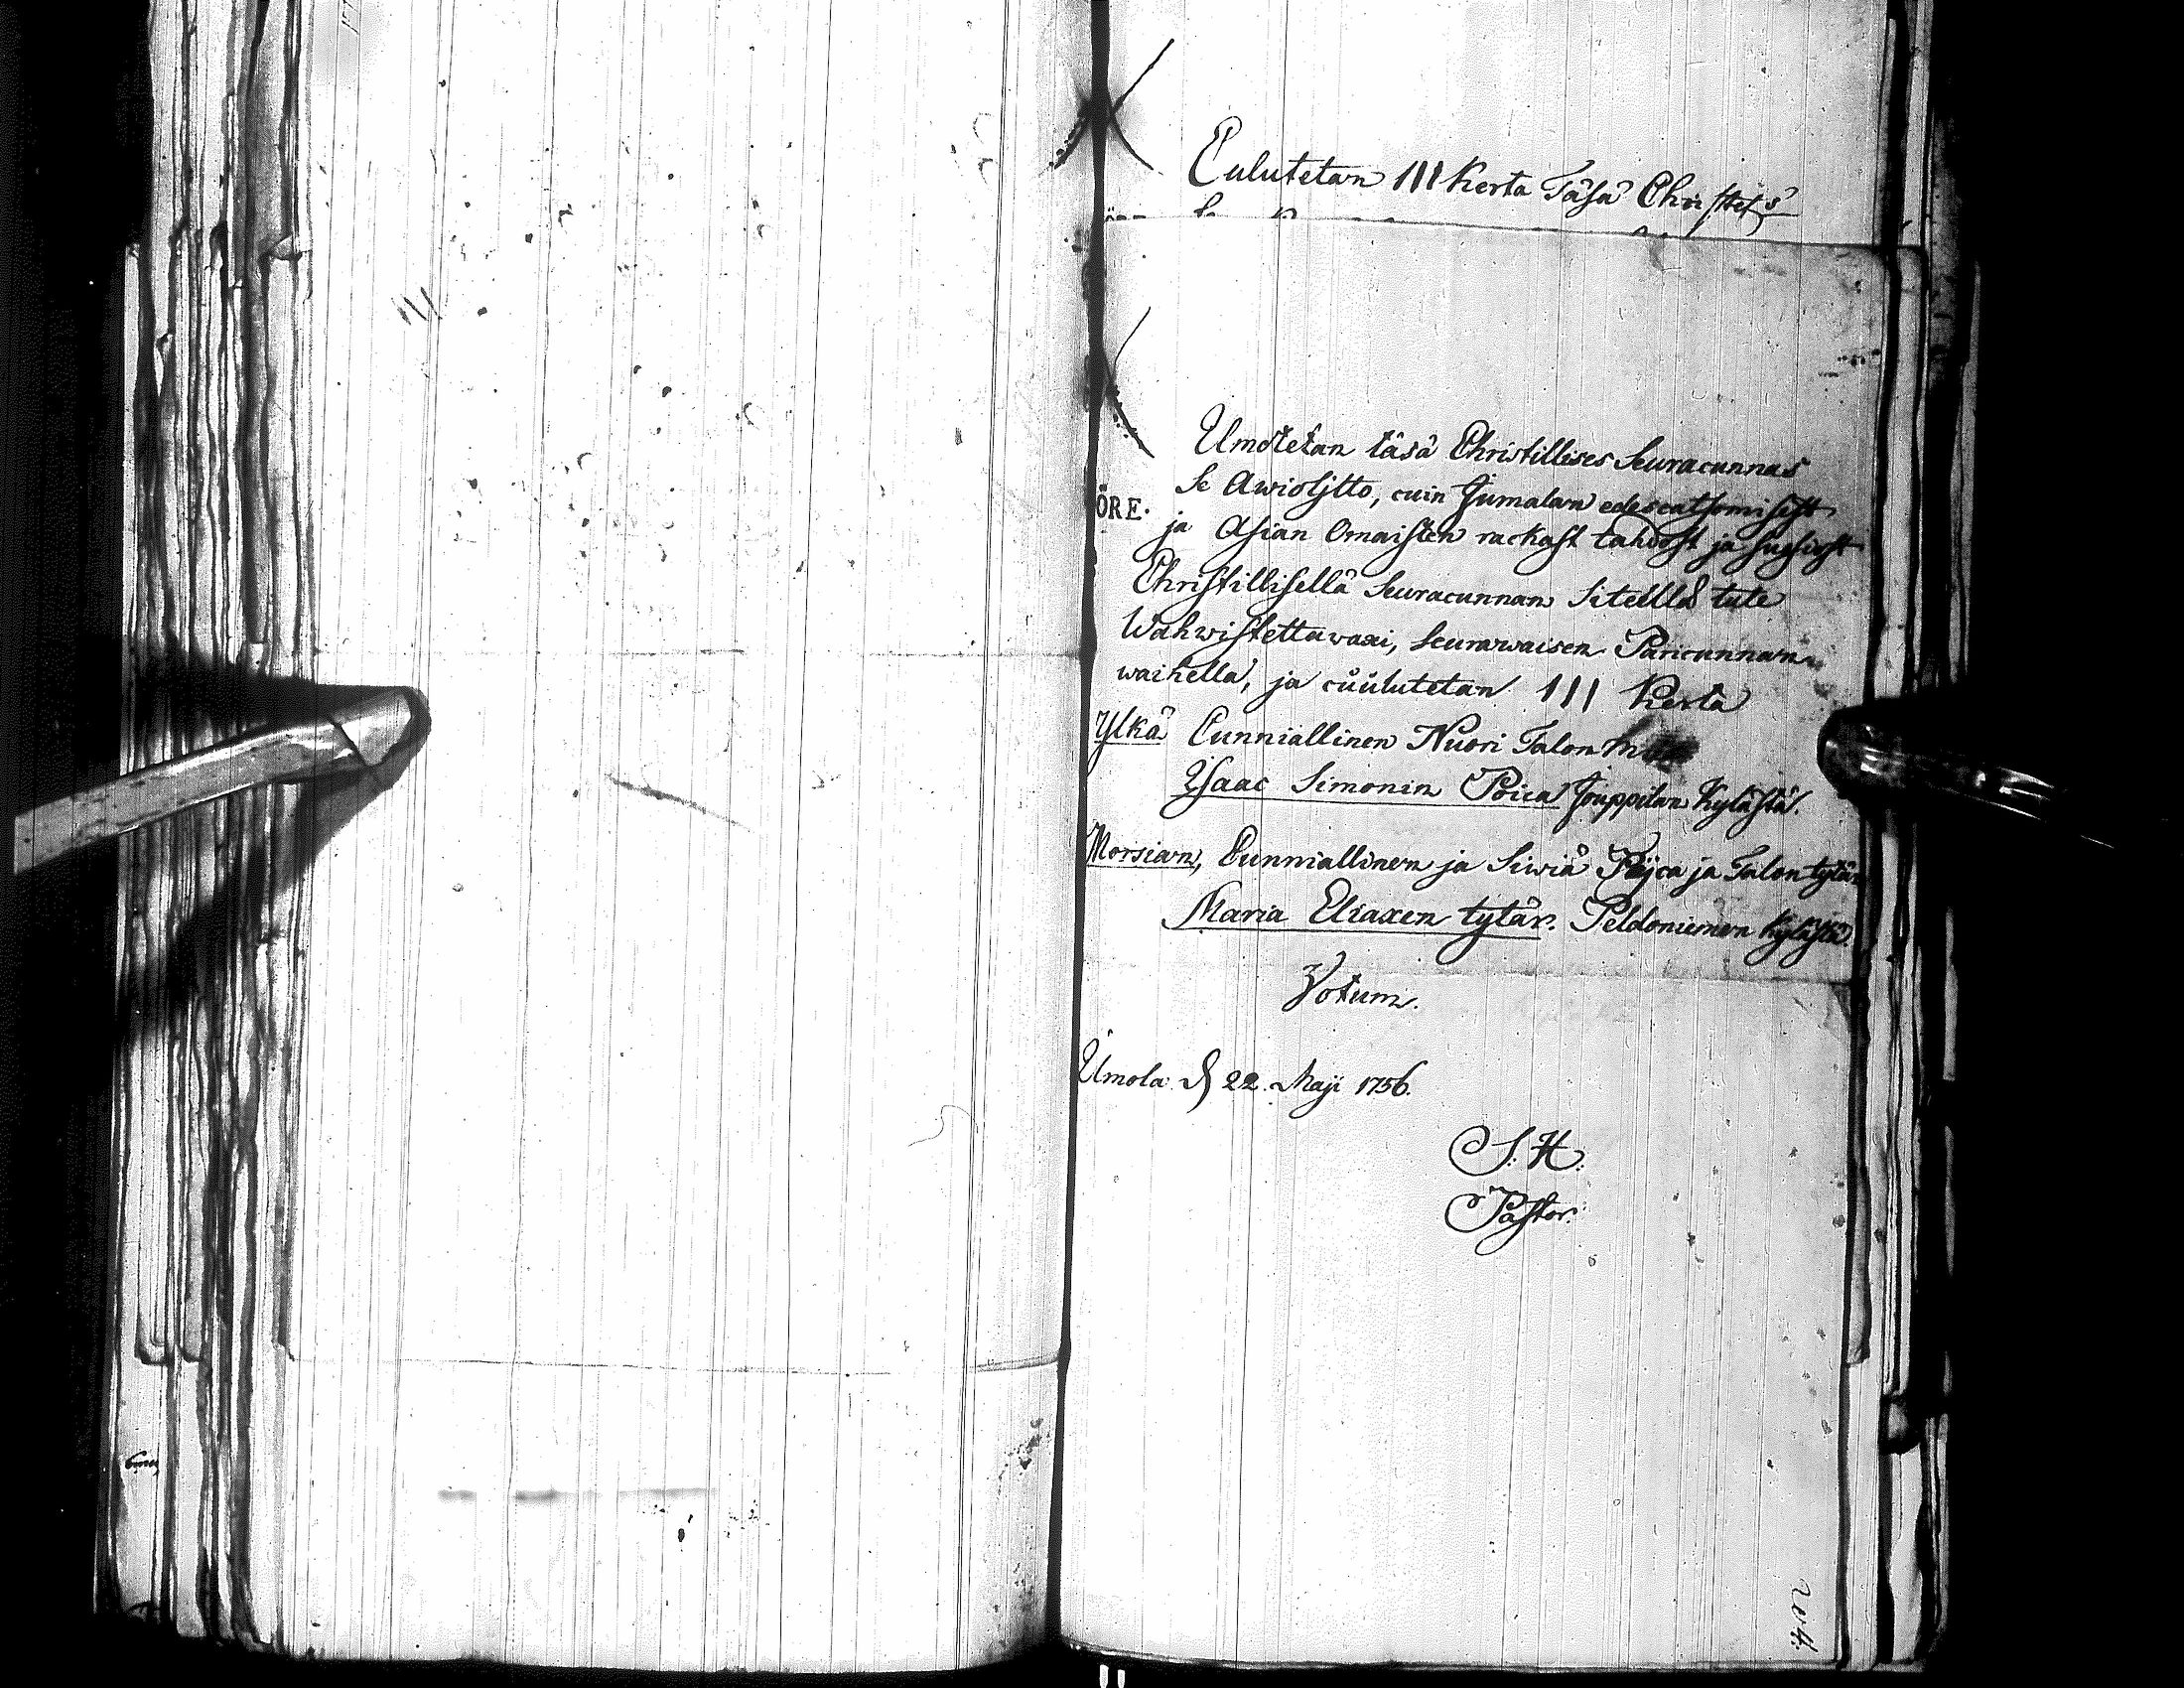 Culutetan III Kerta Täsä Christes
Umotetan täsä Christilises Seuracunnas
Se Awiolijtto, cuin Jumalan edescatsomisest
ÖRE.
ja Asian Omaisten rackast tahdost ja suosiost
Christillisellä Seuracunnan Siteellä tule
Wahwistettawaxi, Seurawaisen Paricunnan
waihella, ja cuulutetan III Kerta
Ylkä Cunniallinen Nuori Talon
Ysaac Simonin Poica Jouppilan Kylästä.
Morsian, Cunniallinen ja Siwiä Pijca ja Talon tytär
Maria Eliaxen tytär. Peldoniemen Kylästä.
Votum.
Umola d 22 Maji 1756.
S. H.
Pastor.
204.